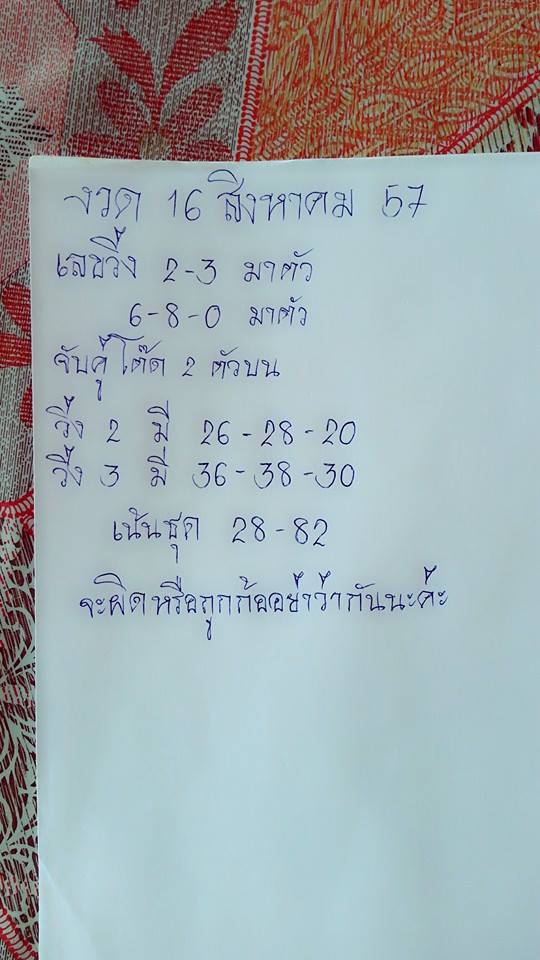 งวด 16 สิงหาคม 57
เลขวิ่ง 2-3 มาตัว
6-8-0 มาตัว
จับคู่โต๊ด 2 ตัวบน
วิ่ง 2 มี 26-28-20
วิ่ง 3 มี 36-38-30
เน้นชุด 28-82
จะผิดหรือถูกก้ออย่าว่ากันนะค่ะ